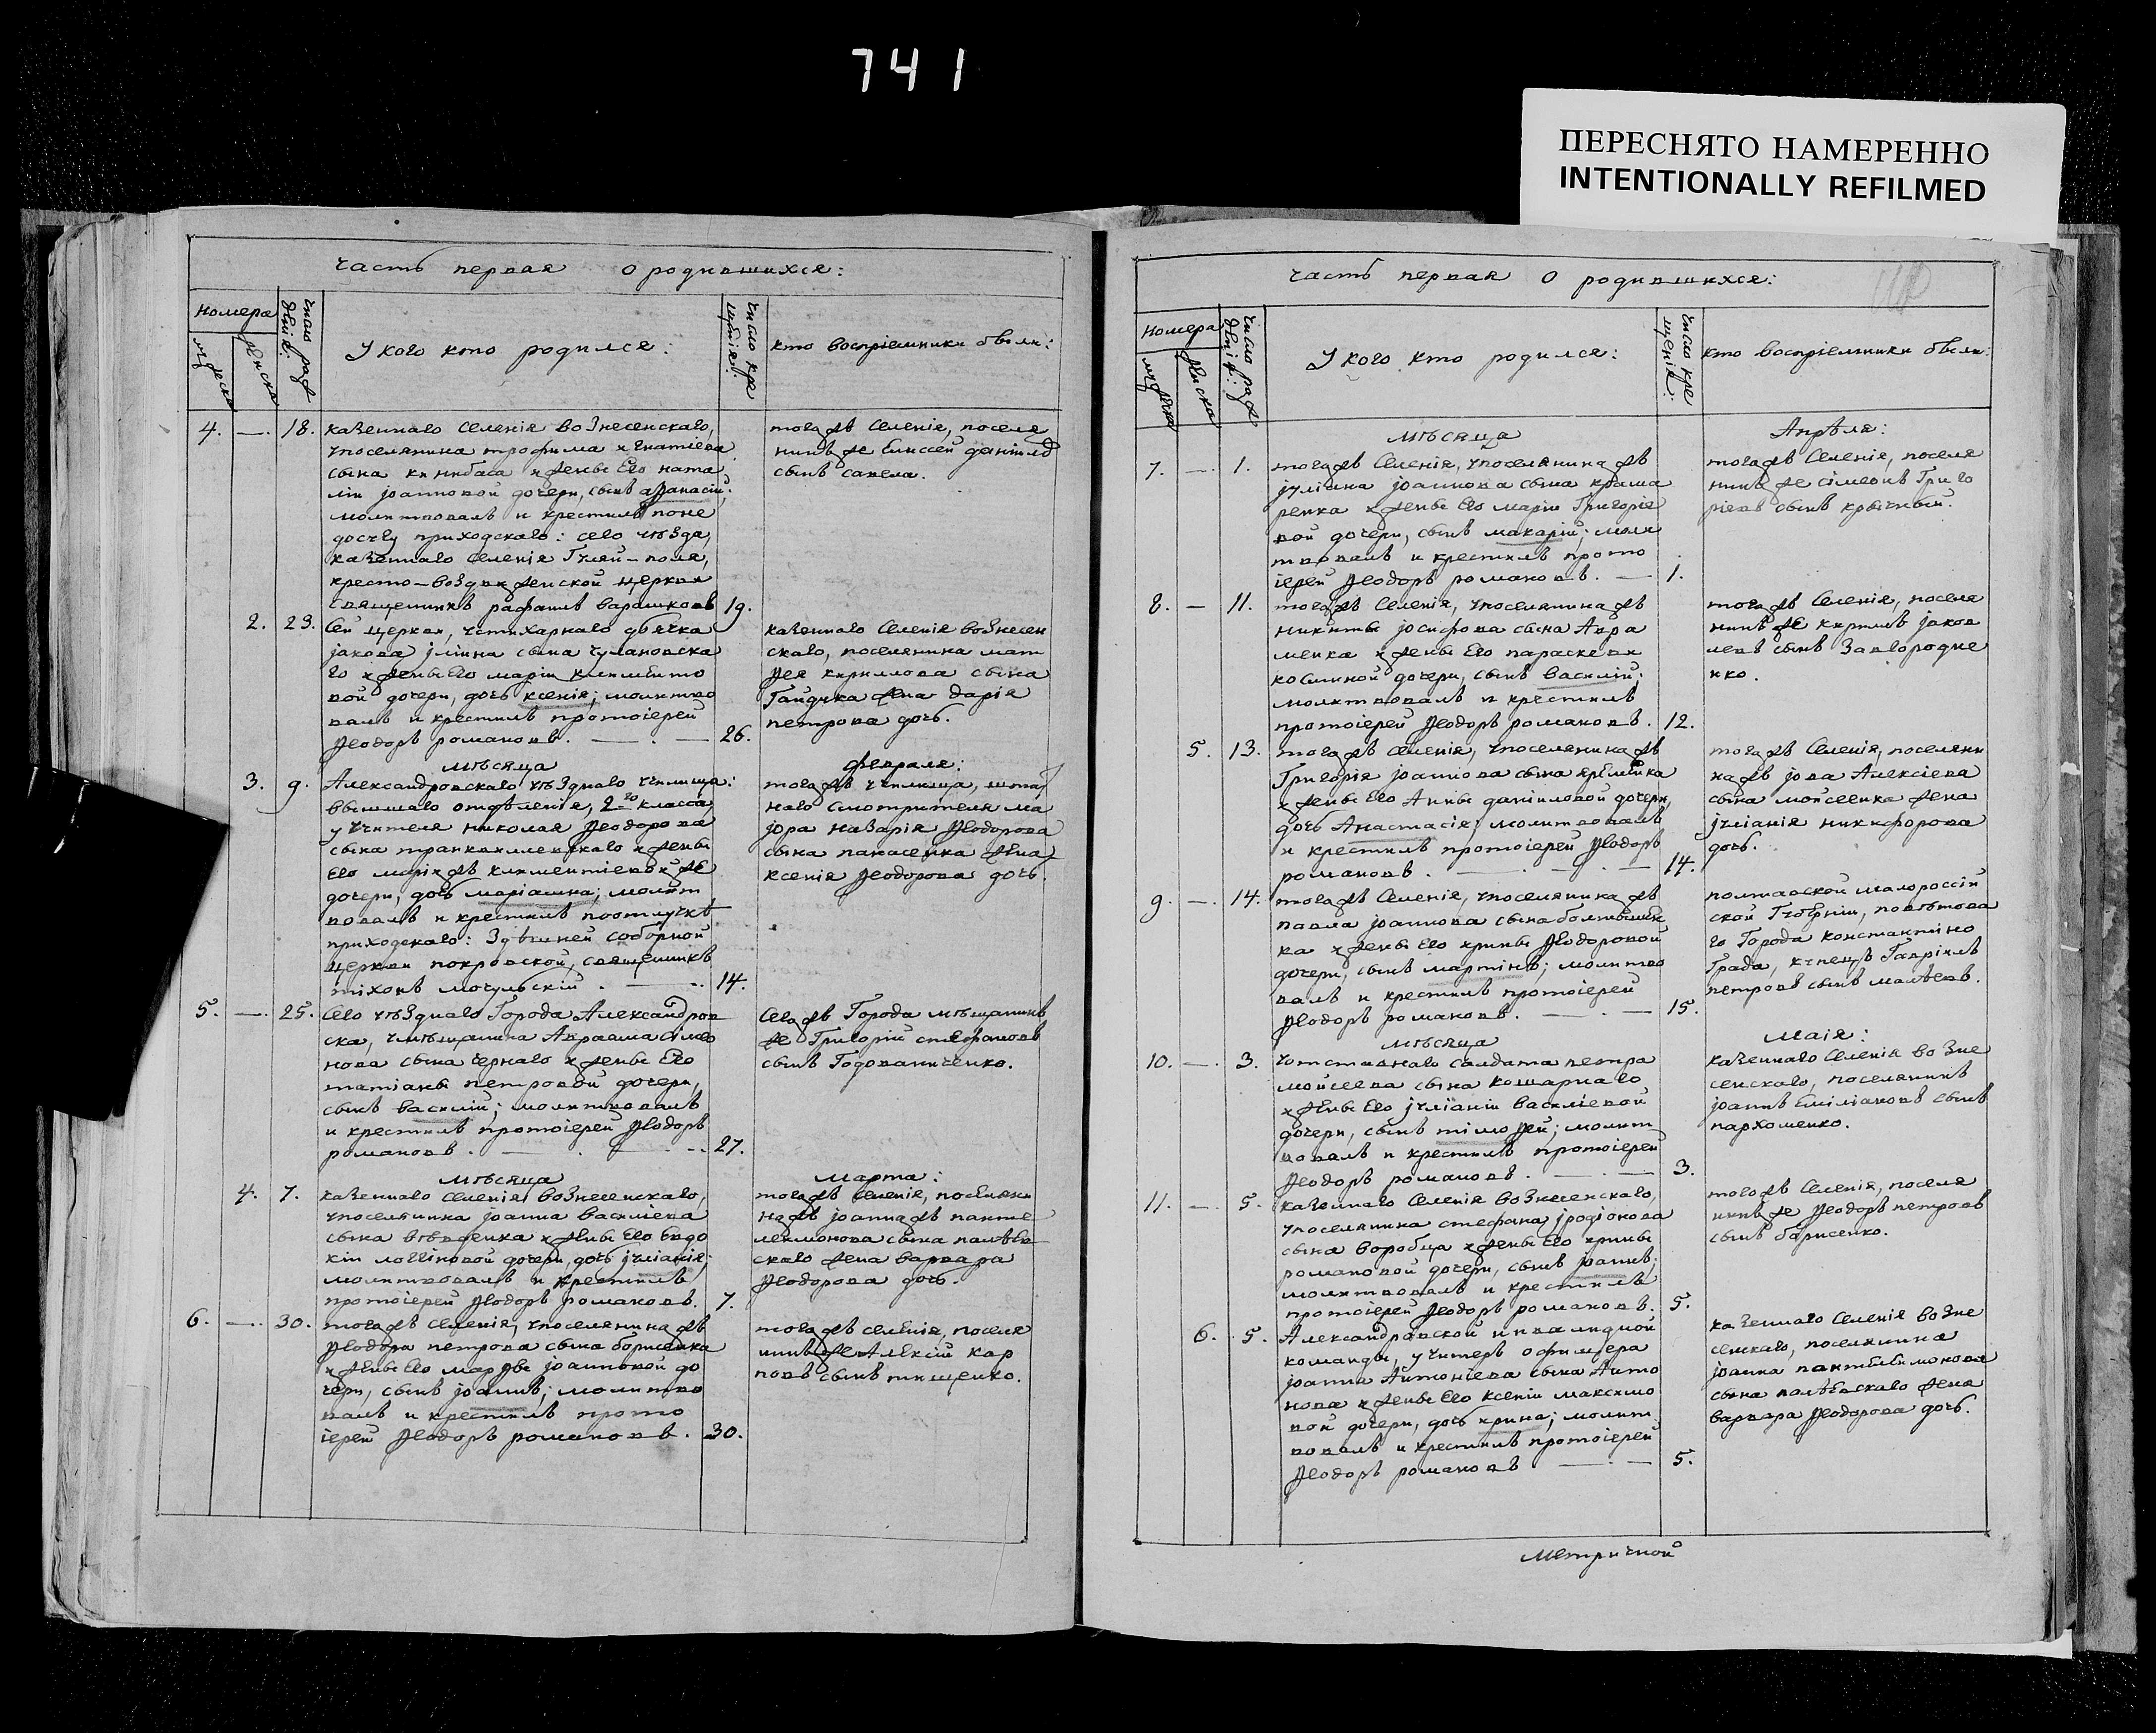 741
ПЕРЕСНЯТО НАМЕРЕННО
INTENTIONALLY REFILMED
часть первая о родившихся:
номера
мужеска
женска
число рождѣнія:
У кого кто родился:
число крещѣнія:
кто восприемники были:
4. — 18.
казеннаго селенія вознесенскаго,
упоселянина трофима игнатіева
сына кинибаса и жены его ната
ліи іоанновой дочери, сынъ афанасій;
молитвовалъ и крестилъ поне
досугу приходскаго: сего уѣзда,
казеннаго селенія Гуляй-поля,
кресто-воздвиженской церкви
священникъ рафаилъ варашковъ 19.
тогожъ селенія, поселя
нинъ же елиссей даніилов
сынъ савела.
2. 23.
сей церкви, устихарнаго дьячка
іакова іуліина сына чулановска
го и жены его маріи климѣнто
вой дочери, дочь ксенія; молитво
валъ и крестилъ протоіерей
Ѳеодоръ романовъ. — . — 26.
казеннаго селенія вознесен
скаго, поселянина мат
ѳея кирилова сына
Гайдука жена дарія
петрова дочь.
мѣсяца
февраля:
3. 9.
Александровскаго уѣзднаго училища:
высшаго отдѣленія, 2го класса,
учителя николая Ѳеодорова
сына транквилевскаго и жены
его маріижъ климентіевойже
дочери, дочь маріамна; молит
вовалъ и крестилъ поотлучкѣ
приходскаго: здѣшней соборной
церкви покровской, священникъ
тіхонъ могульскій. — 14.
тогожъ училища, штат
наго смотрителя ма
іора назарія Ѳеодорова
сына панасенка жена
ксенія Ѳеодорова дочь.
5. — 25.
сего уѣзднаго Города Александров
ска, умѣщанина Авраама сімео
нова сына чернаго и жены его
татіаны петровой дочери,
сынъ василій; молитвовалъ
и крестилъ протоіерей Ѳеодоръ
романовъ. — . — 27.
сегожъ Города мѣщанинъ
же Григорій стефановъ
сынъ Годованиченко.
мѣсяца
марта:
4. 7.
казеннаго селенія вознесенскаго,
упоселянина іоанна василіева
сына вовденка и жены его евдо
кіи логгіновой дочери, дочь іуліанія;
молитвовалъ и крестилъ
протоіерей Ѳеодоръ романовъ. 7.
тогожъ селенія, поселяни
нажъ іоаннажъ панте
леимонова сына палѣев
скаго жена варвара
Ѳеодорова дочь.
6. — 30.
тогожъ селенія, упоселянинажъ
Ѳеодора петрова сына борисенка
и жены его марѳы іоанновой до
чери, сынъ іоаннъ; молитво
валъ и крестилъ прото
іерей Ѳеодоръ романовъ. 30.
тогожъ селенія, поселя
нинъ же Алексій кар
повъ сынъ тищенко.
часть первая о родившихся:
номера
мужеска
женска
число рождѣній:
У кого кто родился:
число крещенія:
кто восприемники были:
мѣсяца
Апрѣля:
7. — 1.
тогожъ селенія, упоселянинажъ
іуліана іоаннова сына крама
ренка и жены его маріи Григоріе
вой дочери, сынъ макарій; моли
твовалъ и крестилъ прото
іерей Ѳеодоръ романовъ. — 1.
тогожъ селенія, поселя
нинъ же сімеонъ Григо
ріевъ сынъ крычный.
8. — 11.
тогожъ селенія, упоселянинажъ
никиты іосифова сына Авра
менка и жены его параскевы
косминой дочери, сынъ василій;
молитвовалъ и крестилъ
протоіерей Ѳеодоръ романовъ. 12.
тогожъ селенія, поселя
нинъ же кирилъ іаков
левъ сынъ Завгородне
нко.
5. 13.
тогожъ селенія, упоселянинажъ
Григорія іоаннова сына ярѣменка
и жены его Анны даніиловой дочери,
дочь Анастасія; молитвовалъ
и крестилъ протоіерей Ѳеодоръ
романовъ. — . — . — 14.
тогожъ селенія, поселяни
нажъ іова Алексіева
сына мойсеенка жена
іуліанія никифорова
дочь.
9. — 14.
тогожъ селенія, упоселянинажъ
павла іоаннова сына болтышен
ка и жены его ирины Ѳеодоровой
дочери, сынъ мартінъ; молитво
валъ и крестилъ протоіерей
Ѳеодоръ романовъ. — . — 15.
полтавской малороссій
ской Губѣрніи, повѣтова
го Города константіно
Града, купецъ Гавріилъ
петровъ сынъ малѣевъ.
мѣсяца
маія:
10. — 3.
уотставнаго салдата петра
мойсеева сына кошарнаго
и жены его іуліаніи василіевой
дочери, сынъ тімоѳей; молит
вовалъ и крестилъ протоіерей
Ѳеодоръ романовъ. — . — 3.
казеннаго селенія возне
сенскаго, поселянинъ
іоаннъ еміліановъ сынъ
пархоменко.
11. — 5.
казеннаго селенія вознесенскаго,
упоселянина стефана іродіонова
сына воробца и жены его ирины
романовой дочери, сынъ іоаннъ;
молитвовалъ и крестилъ
протоіерей Ѳеодоръ романовъ. 5.
тогожъ селенія, поселя
нинъ же Ѳеодоръ петровъ
сынъ борисенко.
6. 5.
Александровской инвалидной
команды, уунтеръ офицера
іоанна Антоніева сына Анто
нова и жены его ксеніи максимо
вой дочери, дочь ирина; молит
вовалъ и крестилъ протоіерей
Ѳеодоръ романовъ — . — 5.
казеннаго селенія возне
сенскаго, поселянина
іоанна пантелеимонова
сына палѣевскаго жена
варвара Ѳеодорова дочь.
метричной